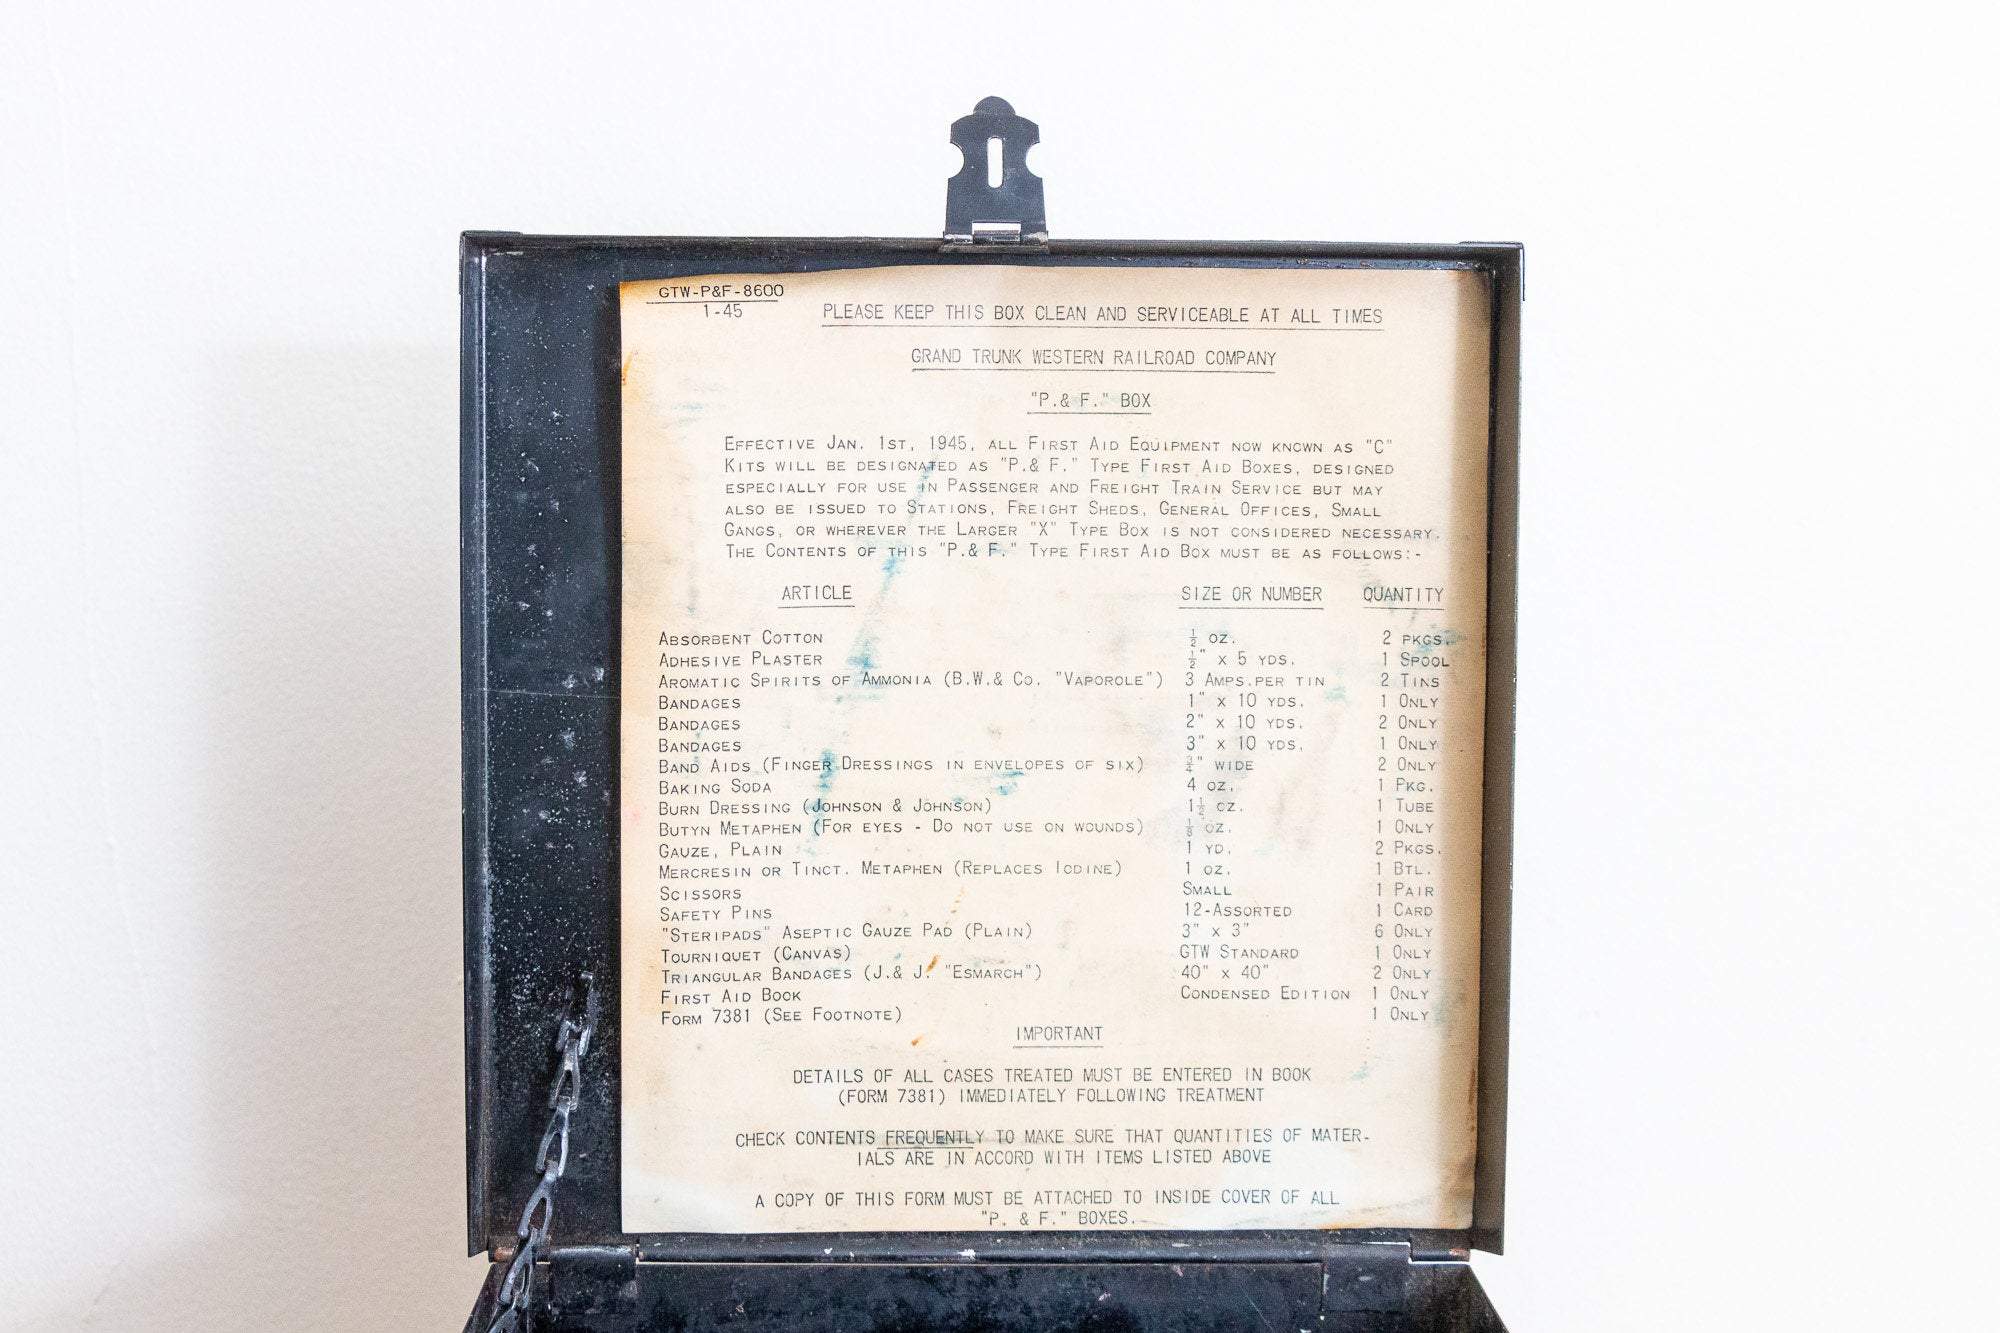 GTW-P&F-8600
1-45
PLEASE KEEP THIS BOX CLEAN AND SERVICEABLE AT ALL TIMES
GRAND TRUNK WESTERN RAILROAD COMPANY
"P.& F." BOX
EFFECTIVE JAN. 1ST, 1945, ALL FIRST AID EQUIPMENT NOW KNOWN AS "C"
KITS WILL BE DESIGNATED AS "P.& F." TYPE FIRST AID BOXES, DESIGNED
ESPECIALLY FOR USE IN PASSENGER AND FREIGHT TRAIN SERVICE BUT MAY
ALSO BE ISSUED TO STATIONS, FREIGHT SHEDS, GENERAL OFFICES, SMALL
GANGS, OR WHEREVER THE LARGER "X" TYPE BOX IS NOT CONSIDERED NECESSARY.
THE CONTENTS OF THIS "P.& F." TYPE FIRST AID BOX MUST BE AS FOLLOWS:-
ARTICLE SIZE OR NUMBER QUANTITY
ABSORBENT COTTON ½ OZ. 2 PKGS.
ADHESIVE PLASTER ½" X 5 YDS. 1 SPOOL
AROMATIC SPIRITS OF AMMONIA (B.W.& CO. "VAPOROLE") 3 AMPS.PER TIN 2 TINS
BANDAGES 1" X 10 YDS. 1 ONLY
BANDAGES 2" X 10 YDS. 2 ONLY
BANDAGES 3" X 10 YDS. 1 ONLY
BAND AIDS (FINGER DRESSINGS IN ENVELOPES OF SIX) ¾" WIDE 2 ONLY
BAKING SODA 4 OZ. 1 PKG.
BURN DRESSING (JOHNSON & JOHNSON) 1½ OZ. 1 TUBE
BUTYN METAPHEN (FOR EYES - DO NOT USE ON WOUNDS) ⅛ OZ. 1 ONLY
GAUZE, PLAIN 1 YD. 2 PKGS.
MERCRESIN OR TINCT. METAPHEN (REPLACES IODINE) 1 OZ. 1 BTL.
SCISSORS SMALL 1 PAIR
SAFETY PINS 12-ASSORTED 1 CARD
"STERIPADS" ASEPTIC GAUZE PAD (PLAIN) 3" X 3" 6 ONLY
TOURNIQUET (CANVAS) GTW STANDARD 1 ONLY
TRIANGULAR BANDAGES (J.& J. "ESMARCH") 40" X 40" 2 ONLY
FIRST AID BOOK CONDENSED EDITION 1 ONLY
FORM 7381 (SEE FOOTNOTE) 1 ONLY
IMPORTANT
DETAILS OF ALL CASES TREATED MUST BE ENTERED IN BOOK
(FORM 7381) IMMEDIATELY FOLLOWING TREATMENT
CHECK CONTENTS FREQUENTLY TO MAKE SURE THAT QUANTITIES OF MATER-
IALS ARE IN ACCORD WITH ITEMS LISTED ABOVE
A COPY OF THIS FORM MUST BE ATTACHED TO INSIDE COVER OF ALL
"P. & F." BOXES.